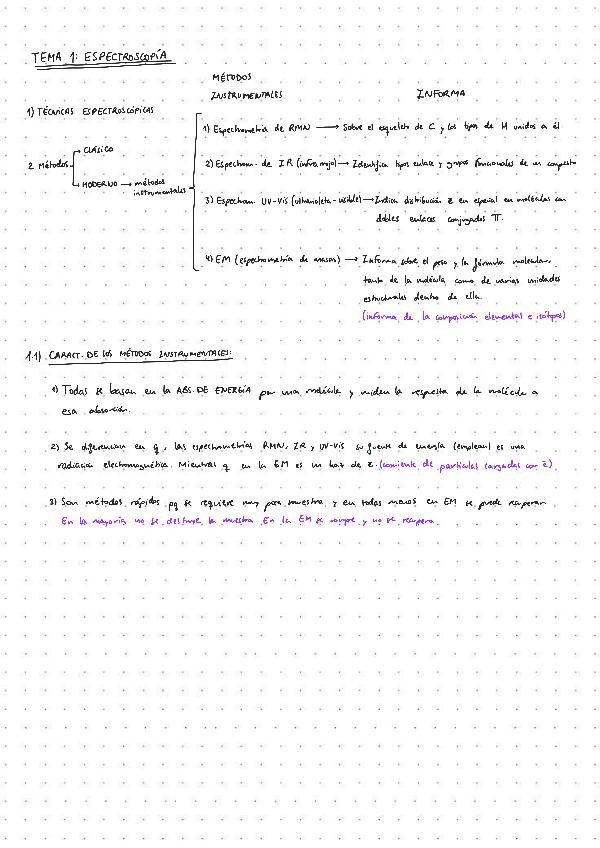 TEMA 1: ESPECTROSCOPÍA
MÉTODOS
INSTRUMENTALES
INFORMA
1) TÉCNICAS ESPECTROSCÓPICAS
1) Espectrometría de RMN → Sobre el esqueleto de C y los tipos de H unidos a él
CLÁSICO
2. Métodos
2) Espectrom. de IR (infrarrojo) → Identifica tipos enlace y grupos funcionales de un compuesto
MODERNO → métodos
instrumentales
3) Espectrom. UV-Vis (ultravioleta-visible) → Indica distribución ē en especial en moléculas con
dobles enlaces conjugados π.
4) EM (espectrometría de masas) → Informa sobre el peso y la fórmula molecular,
tanto de la molécula como de varias unidades
estructurales dentro de ella.
(informa de la composición elemental e isótopos)
1.1) CARACT. DE LOS MÉTODOS INSTRUMENTALES:
1) Todas se basan en la ABS. DE ENERGÍA por una molécula y miden la respuesta de la molécula a
esa absorción.
2) Se diferencian en q, las espectrometrías RMN, IR y UV-Vis su fuente de energía (emplean) es una
radiación electromagnética. Mientras q en la EM es un haz de ē. (corriente de partículas cargadas con ē)
3) Son métodos rápidos pq se requiere muy poca muestra y en todas menos en EM se puede recuperar.
En la mayoría no se destruye la muestra. En la EM se rompe y no se recupera.